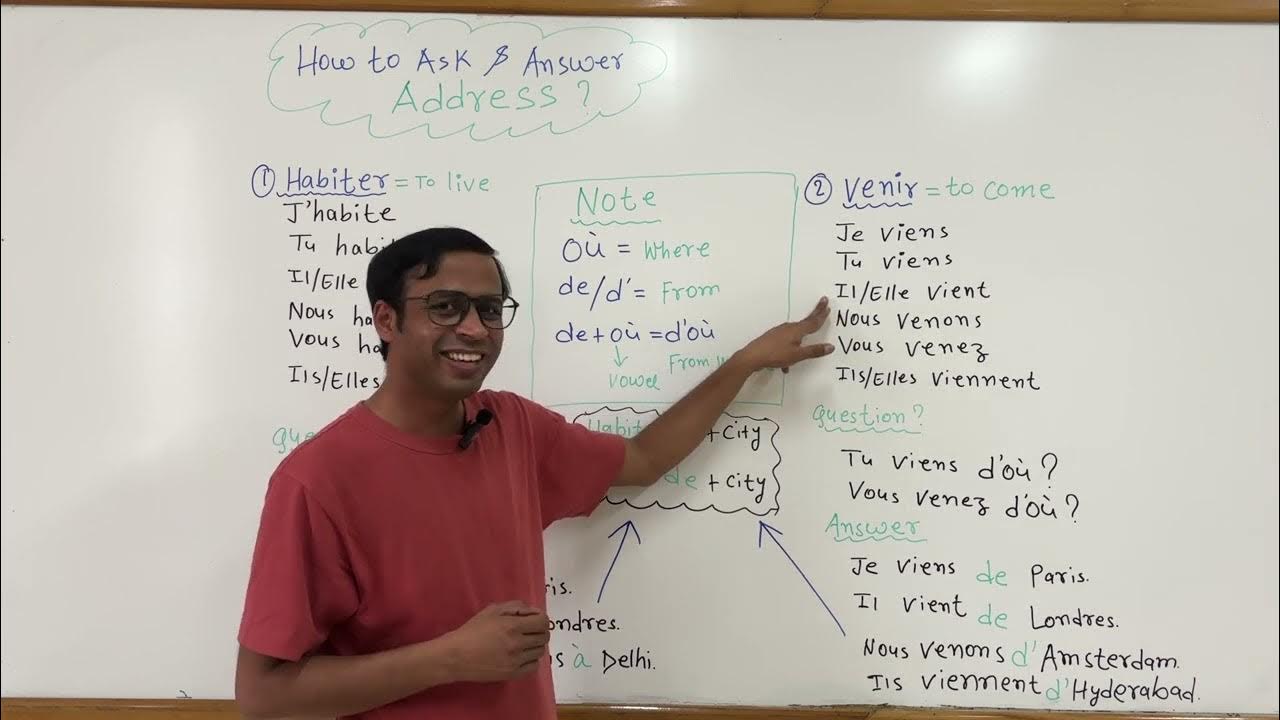 How to Ask & Answer
Address?
① Habiter = To live
J'habite
Tu
Il/Elle
Nous
Vous
Ils/Elles
Note
Où = Where
de/d' = From
de + où = d'où
↓
Vowel
From
+ City
de + City
ondres.
à Delhi.
② Venir = to come
Je viens
Tu viens
Il/Elle vient
Nous venons
Vous venez
Ils/Elles viennent
Question?
Tu viens d'où?
Vous venez d'où?
Answer
Je viens de Paris.
Il vient de Londres.
Nous venons d'Amsterdam.
Ils viennent d'Hyderabad.